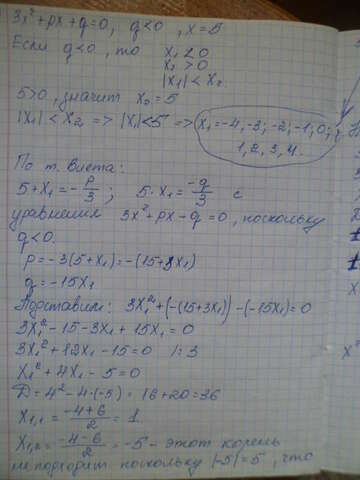 3x² + px + q = 0, q < 0, x = 5
Если q < 0, то x₁ < 0
x₂ > 0
|x₁| < x₂
5 > 0, значит x₂ = 5
|x₁| < x₂ => |x₁| < 5 => x₁ = -4, -3; -2; -1; 0;
1, 2, 3, 4.
По т. Виета:
5 + x₁ = -p/3; 5·x₁ = -q/3 с
уравнения 3x² + px - q = 0, поскольку
q < 0.
p = -3(5 + x₁) = -(15 + 3x₁)
q = -15x₁
Подставим: 3x₁² + (-(15 + 3x₁)) - (-15x₁) = 0
3x₁² - 15 - 3x₁ + 15x₁ = 0
3x₁² + 12x₁ - 15 = 0 /:3
x₁² + 4x₁ - 5 = 0
D = 4² - 4·(-5) = 16 + 20 = 36
x₁,₁ = (-4+6)/2 = 1.
x₁,₂ = (-4-6)/2 = -5 - этот корень
не подходит поскольку |-5| = 5, что